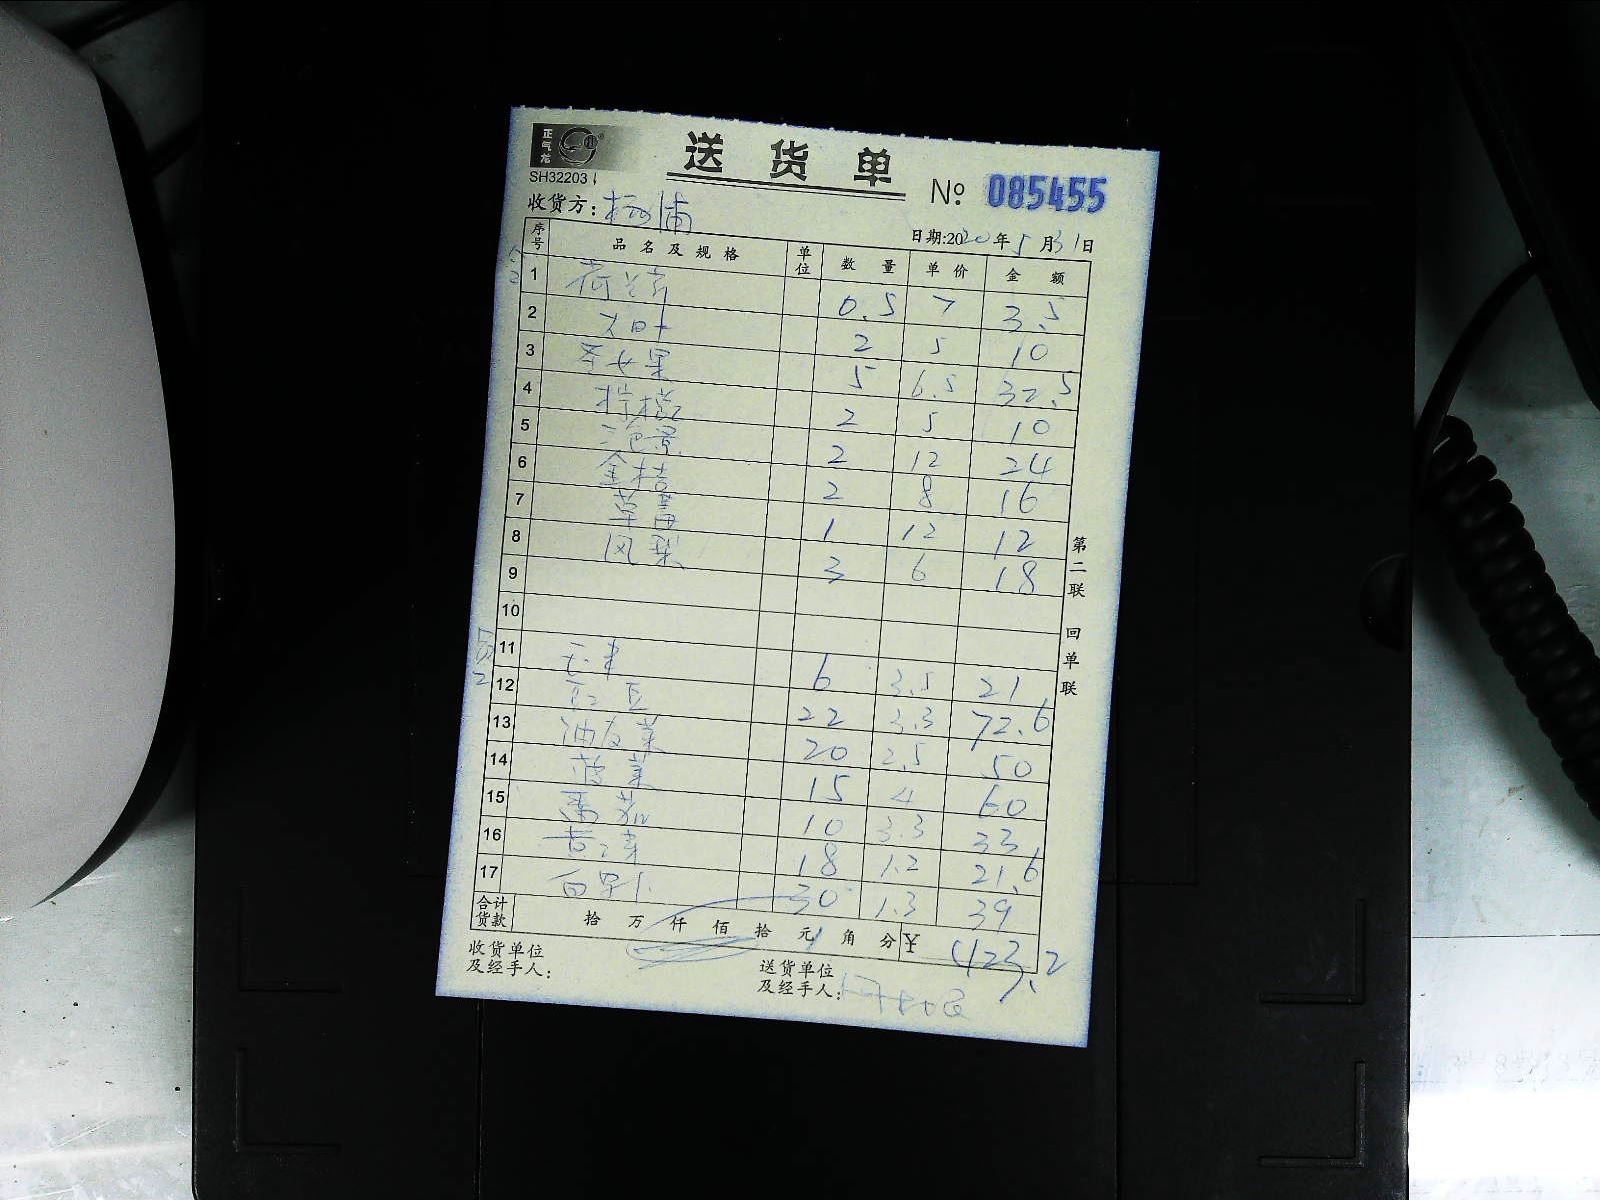 正气龙
SH32203
送货单
No. 085455
收货方：杨浦
日期:2020年5月31日
序号 品名及规格 单位 数量 单价 金额
1 荷兰芹 0.5 7 3.5
2 大叶 2 5 10
3 圣女果 5 6.5 32.5
4 柠檬 2 5 10
5 三色堇 2 12 24
6 金桔 2 8 16
7 草莓 1 12 12
8 凤梨 3 6 18
9
10
11 毛菜 6 3.5 21
12 豇豆 22 3.3 72.6
13 油麦菜 20 2.5 50
14 菠菜 15 4 60
15 番茄 10 3.3 33
16 18 1.2 21.6
17 白萝卜 30 1.3 39
合计货款 拾 万 仟 佰 拾 元 角 分 ¥ 423.2
收货单位及经手人：
送货单位及经手人：
第二联 回单联